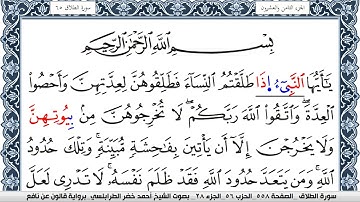 الجزء الثامن والعشرون
سورة الطلاق ٦٥
بِسْمِ اللَّهِ الرَّحْمَٰنِ الرَّحِيمِ
يَٰٓأَيُّهَا النَّبِيٓءُ اِ۬ذَا طَلَّقْتُمُ النِّسَآءَ فَطَلِّقُوهُنَّ لِعِدَّتِهِنَّ وَأَحْصُوا۟
الْعِدَّةَ وَاتَّقُوا۟ اللَّهَ رَبَّكُمْ لَا تُخْرِجُوهُنَّ مِنۢ بِيُوتِهِنَّ
وَلَا يَخْرُجْنَ إِلَّآ أَن يَأْتِينَ بِفَٰحِشَةٍ مُّبَيِّنَةٍ وَتِلْكَ حُدُودُ
اللَّهِ وَمَن يَتَعَدَّ حُدُودَ اللَّهِ فَقَدْ ظَلَمَ نَفْسَهُۥ لَا تَدْرِى لَعَلَّ
سورة الطلاق الصفحة ٥٥٨ الحزب ٥٦ الجزء ٢٨ بصوت الشيخ أحمد خضر الطرابلسي برواية قالون عن نافع